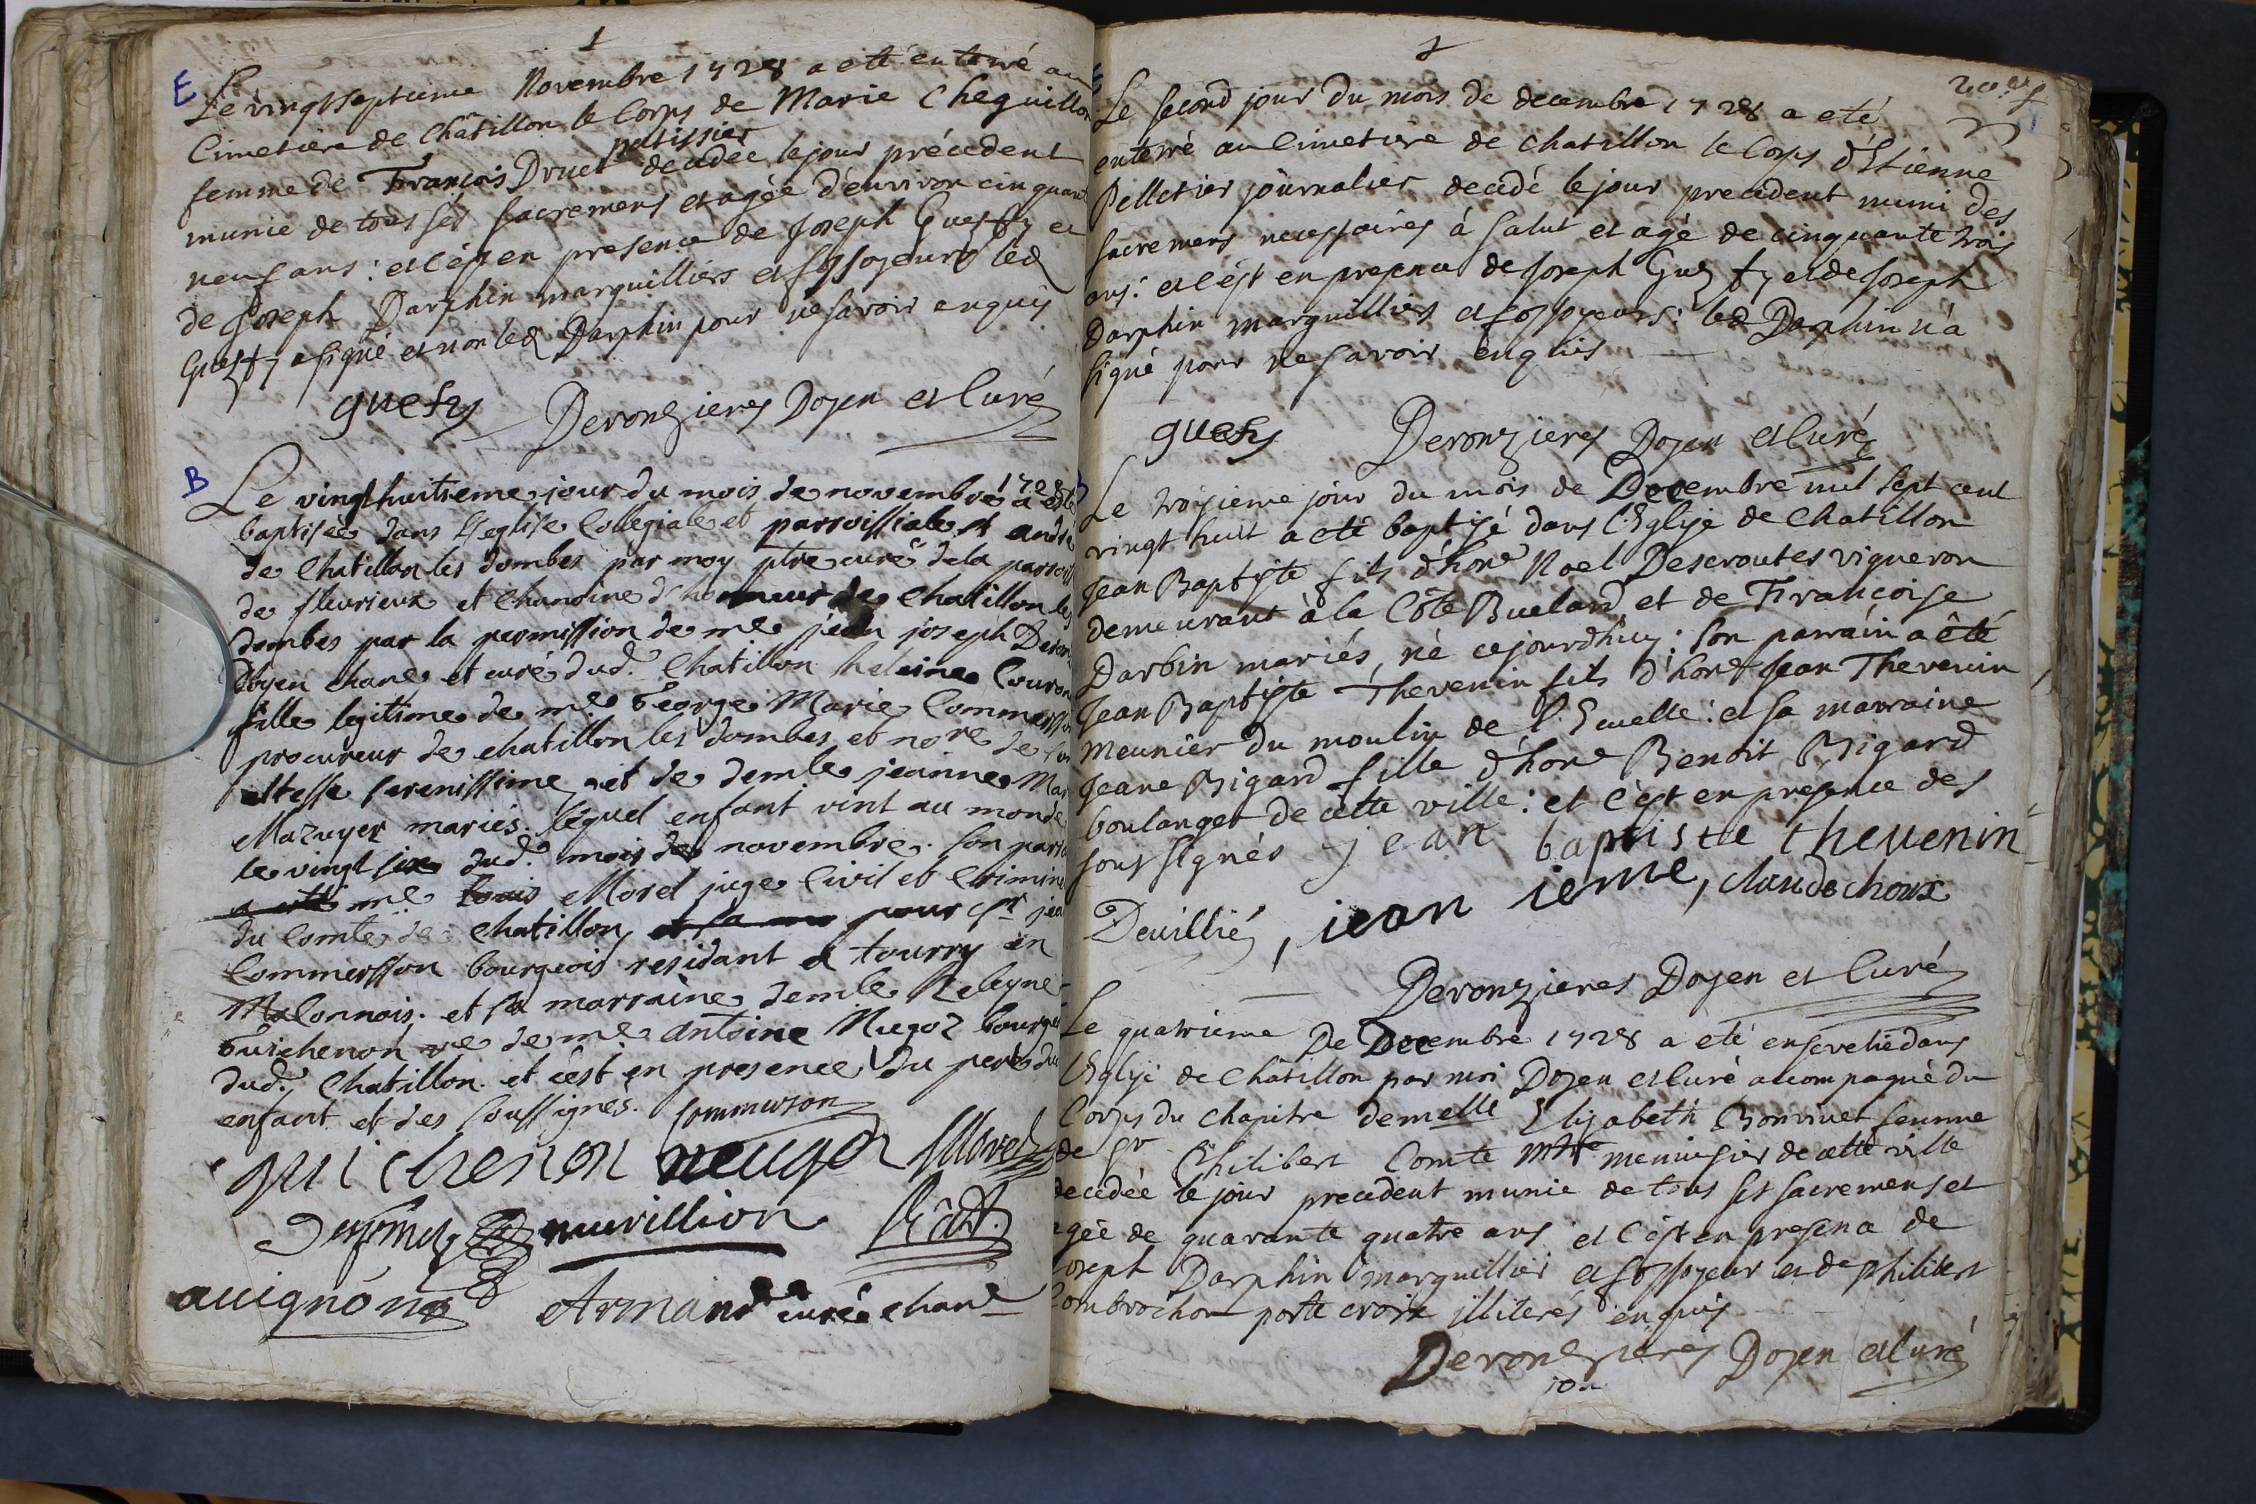 1
E
Le vingt septieme Novembre 1728 a eté enterré au
Cimetiere de Châtillon le Corps de Marie Cheguillon
patissier
femme de François Druet decedée le jour précedent
munie de tous ses sacremens et agée d'environ cinquante
neuf ans : et c'est en presence de Joseph Guesty et
de Joseph Darphin marguilliers et fossoyeurs led
Guesty a signé et non led Darphin pour ne savoir enquis
guesty Deronzieres Doyen et Curé
B
Le vingt huitieme jour du mois de novembre 1728 a esté
baptisée dans l'eglise Collegiale et parroissiale st andré
de Chatillon les dombes par moy ptre curé de la parroisse
de fleurieux et Chanoine d'honneur de Chatillon les
dombes par la permission de me jean joseph
Doyen chane et curé dud. Chatillon helaine
fille legitime de me George Marie Commerson
procureur de chatillon les dombes et nore de son
altesse serenissime et de demlle jeanne
Mazuyer mariés. lequel enfant vint au monde
le vingt six dud. mois de novembre. son parrain
a esté me Louis Morel juge Civil et Criminel
du Comté de Chatillon et sa ma pour sr jean
Commersson bourgeois residant a tourry en
Maconnois. et sa marraine demlle
Guichenon ve de me Antoine bourgeois
dud. Chatillon. et c'est en presence du pere du
enfant et des soussignés. Commerson
guichenon neugoz Morel
murillion
avignon Armand curé chane
1
Le second jour du mois de decembre 1728 a eté
enterré au Cimetiere de chatillon le Corps d'Etienne
Pelletier journalier decedé le jour precedent muni des
sacremens necessaires à salut et agé de cinquante trois
ans : et c'est en presence de Joseph Guesty et de Joseph
Darphin marguilliers et fossoyeurs : led Darphin n'a
signé pour ne savoir enquis
guesty Deronzieres Doyen et Curé
Le troisieme jour du mois de Decembre mil sept cent
vingt huit a eté baptisé dans l'Eglise de Chatillon
Jean Baptiste fils d'hone Noel Descroutes vigneron
demeurant à la Côte Buelard et de Françoise
Darbin mariés, né cejourdhuy : son parrain a été
Jean Baptiste Thevenin fils d'hone Jean Thevenin
meunier du moulin de : et sa marraine
Jeane Bigard fille d'hone Benoit Bigard
boulanger de cette ville : et c'est en presence des
sous signés jean baptiste thevenin
Devillié, jean ieme, claude choux
Deronzieres Doyen et Curé
Le quatrieme De Decembre 1728 a eté ensevelie dans
l'Eglise de Châtillon par moi Doyen et Curé accompagné du
Corps du chapitre demelle Elizabeth Bonvivet femme
de sr Philibert Comte mtre menuisier de cette ville
decedée le jour precedent munie de tous ses sacremens et
agée de quarante quatre ans et c'est en presence de
Joseph Darphin marguillier et fossoyeur et de philibert
Combrochon porte croix illiterés enquis
Deronzieres Doyen et Curé